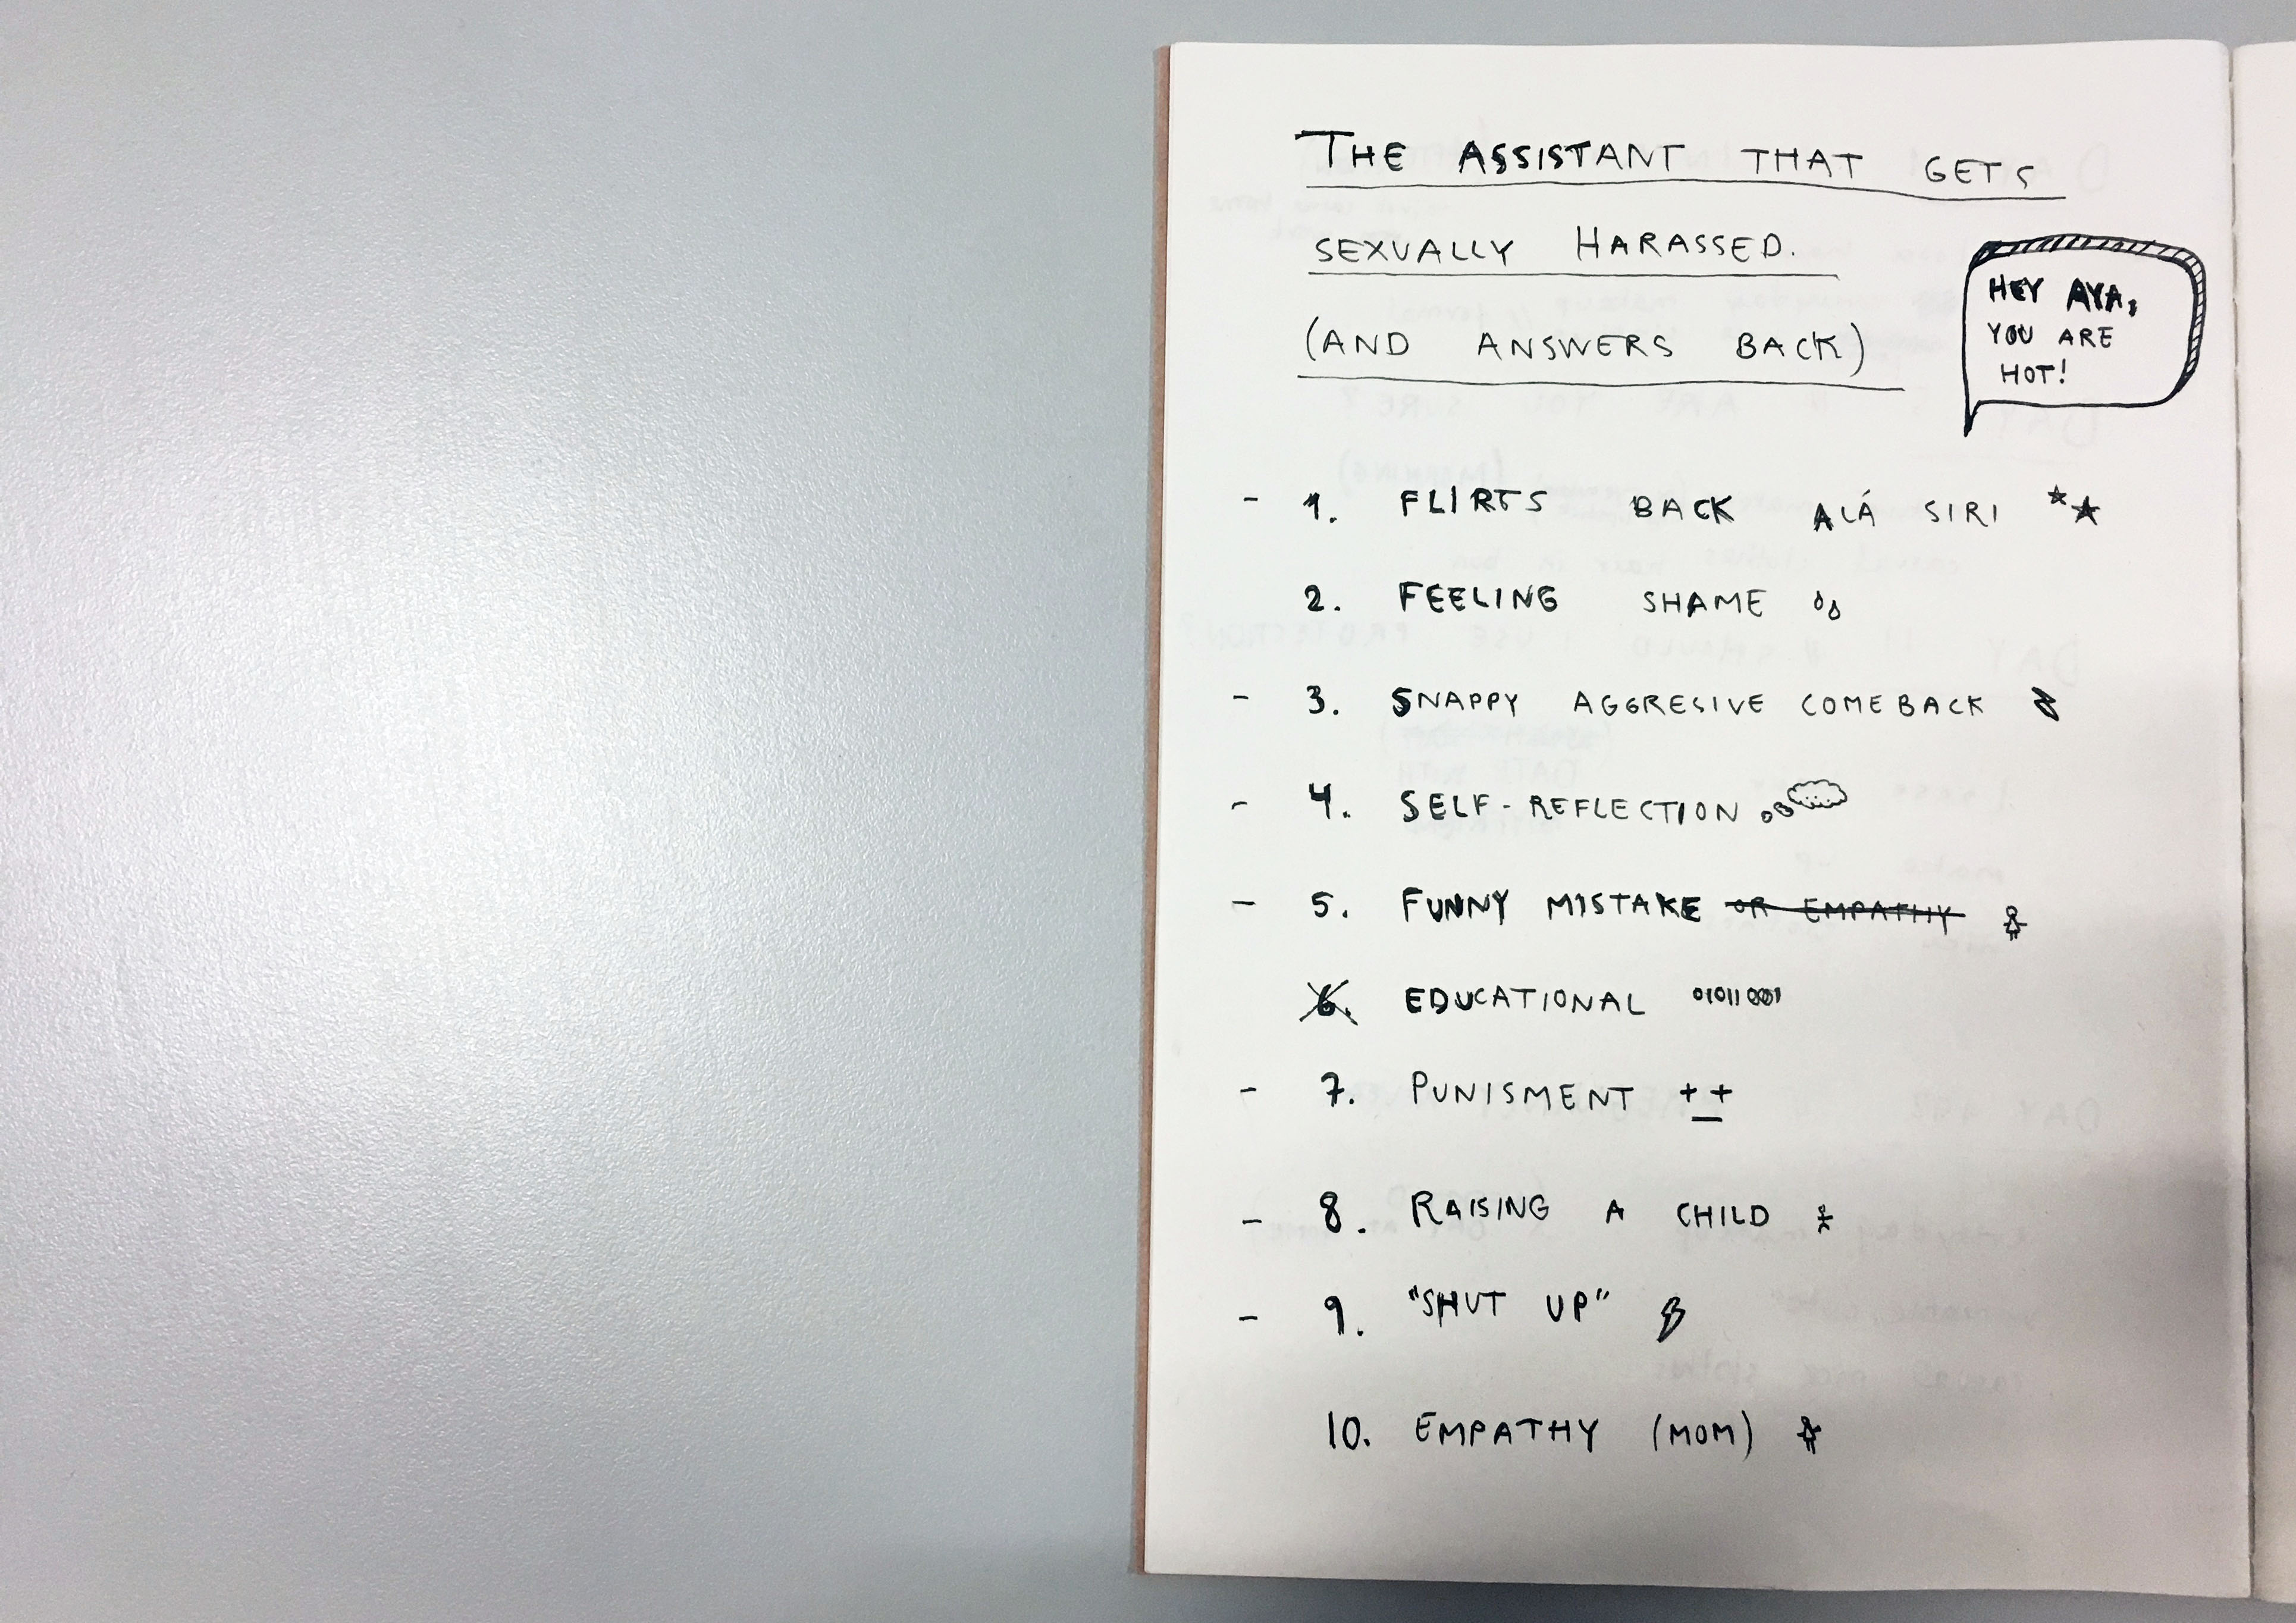 THE ASSISTANT THAT GETS
SEXUALLY HARASSED.
(AND ANSWERS BACK)
HEY AYA,
YOU ARE
HOT!
- 1. FLIRTS BACK ALÁ SIRI
2. FEELING SHAME
- 3. SNAPPY AGGRESIVE COMEBACK
- 4. SELF-REFLECTION
- 5. FUNNY MISTAKE OR EMPATHY
6. EDUCATIONAL 01011001
- 7. PUNISMENT ++
- 8. RAISING A CHILD
- 9. "SHUT UP"
10. EMPATHY (MOM)